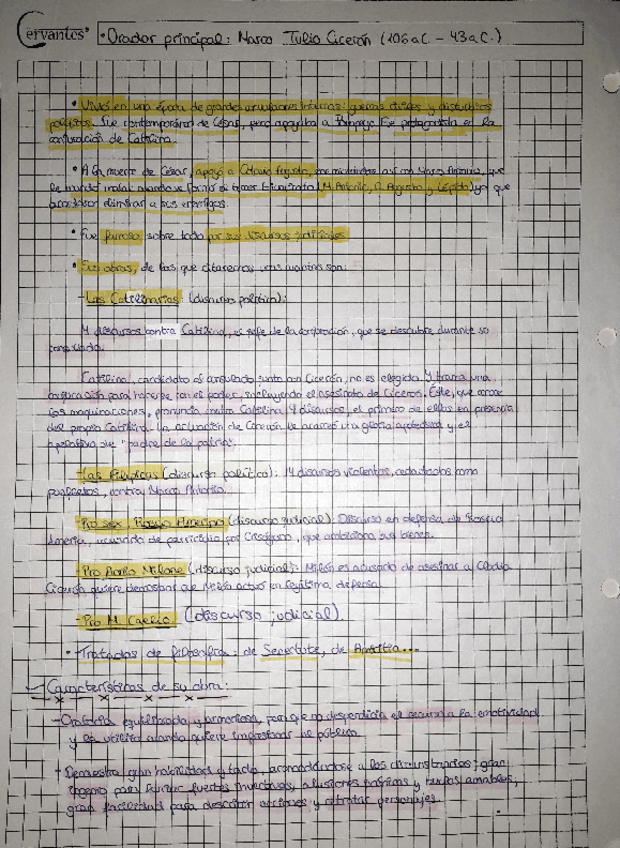 Cervantes
• Orador principal: Marco Tulio Cicerón (106 a.C. - 43 a.C.)
• Vivió en una época de grandes convulsiones internas: guerras civiles y disturbios
políticos. Fue contemporáneo de César, pero apoyaba a Pompeyo. Es protagonista en la
conjuración de Catilina.
• A la muerte de César, apoyó a Octavio Augusto, Marco Antonio, que
le mandó matar cuando se formó el triunvirato (M. Antonio, O. Augusto y Lépido) ya que
acordaron eliminar a sus enemigos.
• Fue famoso sobre todo por sus discursos judiciales
• Sus obras, de las que citaremos unas cuantas son:
- Las Catilinarias (discurso político):
4 discursos contra Catilina, el jefe de la conjuración, que se descubre durante su
consulado.
Catilina, candidato al consulado junto con Cicerón, no es elegido. Y trama una
conjuración para hacerse con el poder, incluyendo el asesinato de Cicerón. Éste, que conoce
las maquinaciones, pronuncia contra Catilina 4 discursos, el primero de ellos en presencia
del propio Catilina. La actuación de Cicerón le acarreó una gloria y el
apelativo de "padre de la patria".
- Las Filípicas (discurso político): 14 discursos violentos, redactados como
panfletos, contra Marco Antonio.
- Pro Sex. Roscio Amerino (discurso judicial): Discurso en defensa de Roscio
Ameria, acusado de parricidio por Crisógono, que ambiciona sus bienes.
- Pro Annio Milone (discurso judicial): Milón es acusado de asesinar a Clodio
Cicerón quiere demostrar que Milón actuó en legítima defensa.
- Pro M. Caelio (discurso judicial).
• Tratados de filosofía: de Senectute, de Amicitia...
Características de su obra:
- Oratoria equilibrada y armoniosa, pero que no desperdicia el recurso a la emotividad
y la utiliza cuando quiere impresionar al público.
- Demuestra gran habilidad y tacto, acomodándose a las circunstancias; gran
ingenio para lanzar fuertes invectivas, alusiones y amables,
gran facilidad para describir acciones y retratar personajes.